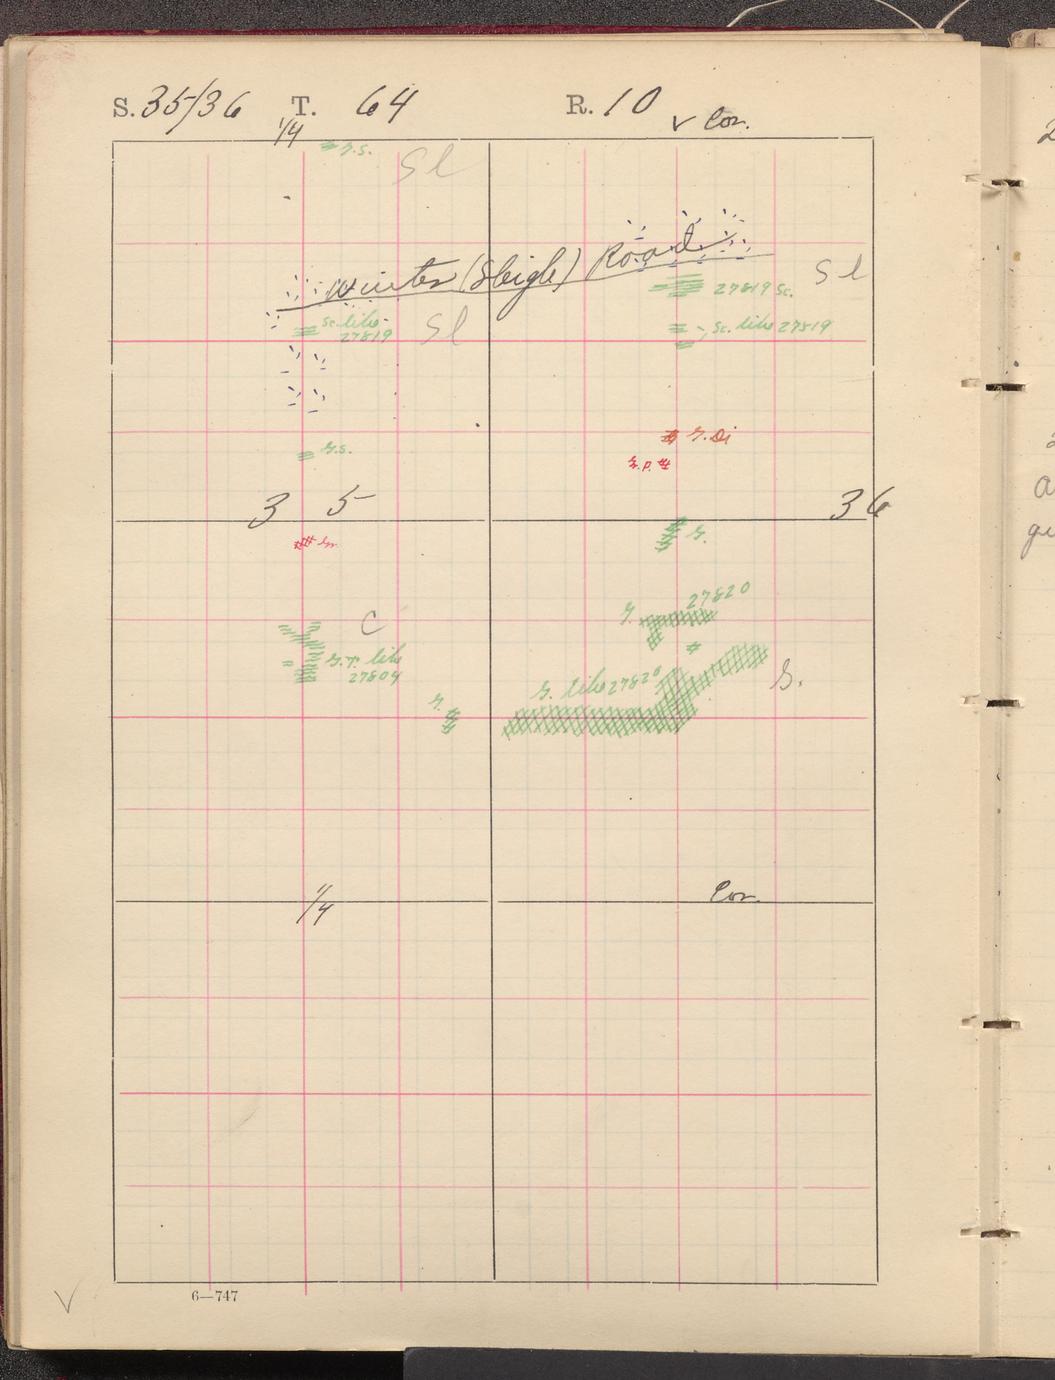 S. 35/36 T. 64 R. 10
1/4 v Cor.
g.s. Sl
Winter (Sleigh) Road
Sl
27819 Sc.
Sc. like 27819
Sl
Sc. like 27819
g. Di
g.s. g.p.
3 5 36
g.
27820
g.
C
g.r. like 27804
g. like 27820
g.
g.
1/4 Cor.
6—747